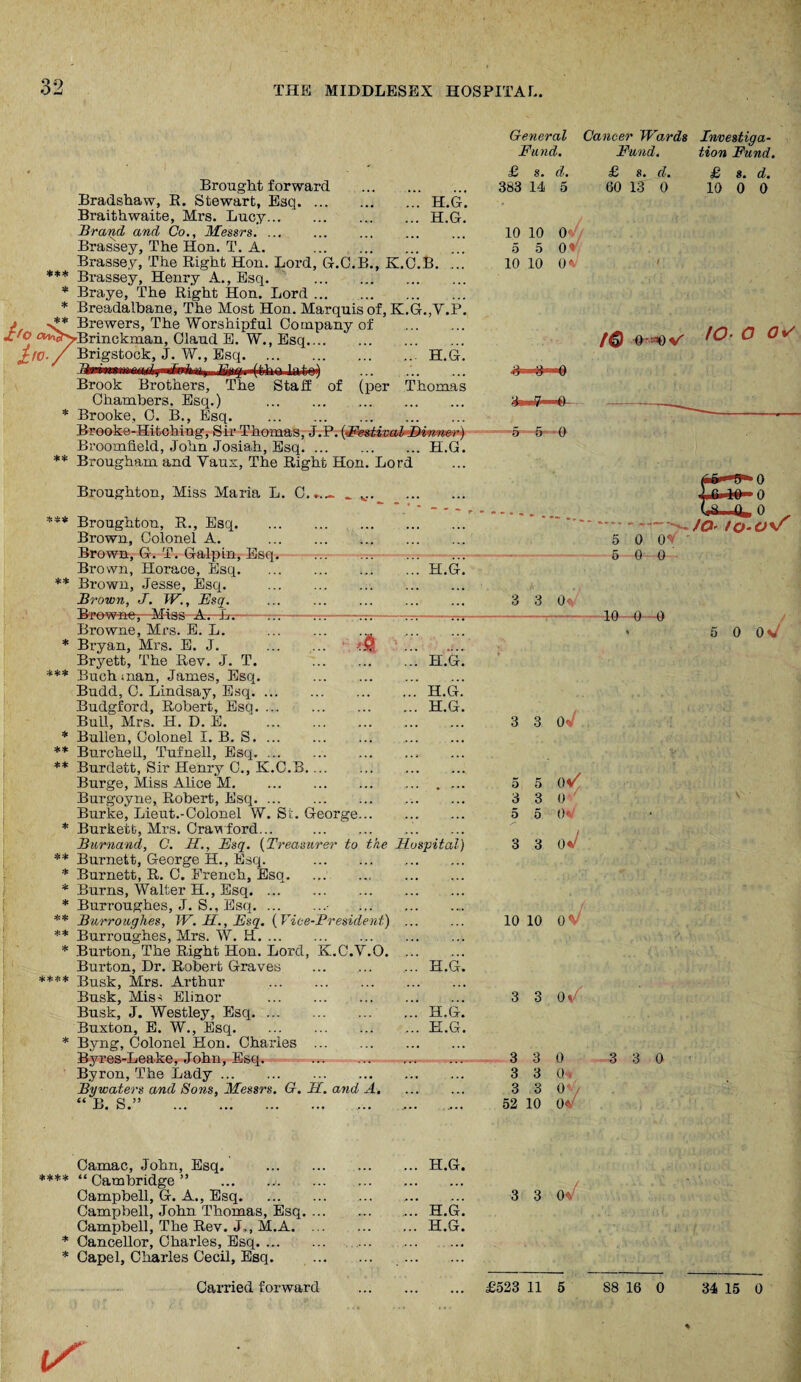 32 THE MIDDLESEX HOSPITAL.
General Fund. Cancer Wards Fund. Investigation Fund.
£ s. d. £ s. d. £ s. d.
Brought forward ... ... ... 383 14 5 60 13 0 10 0 0
Bradshaw, R. Stewart, Esq. ... ... ... H.G.
Braithwaite, Mrs. Lucy... ... ... ... H.G.
Brand and Co., Messrs. ... ... ... ... ... 10 10 0
Brassey, The Hon. T. A. ... ... ... ... 5 5 0
Brassey, The Right Hon. Lord, G.C.B., K.C.B. ... 10 10 0
*** Brassey, Henry A., Esq. ... ... ... ...
* Braye, The Right Hon. Lord ... ... ... ...
* Breadalbane, The Most Hon. Marquis of, K.G.,V.P.
** Brewers, The Worshipful Company of ... ...
£10 and Brinckman, Claud E. W., Esq.... ... ... ... 10 0 0 10. 0 0
£10. / Brigstock, J. W., Esq. ... ... ... ... H.G.
Brinsmead, John, Esq. (the late) ... ... ... 3 3 0
Brook Brothers, The Staff of (per Thomas
Chambers, Esq.) ... ... ... ... ... 3 7 0
* Brooke, C. B., Esq. ... ... ... ... ...
Brooke-Hitching, Sir Thomas, J.P. (Festival Dinner) 5 5 0
Broomfield, John Josiah, Esq. ... ... ... H.G.
** Brougham and Vaux, The Right Hon. Lord ...
Broughton, Miss Maria L. C. ... ... ... 5 5 0
6 10 0
*** Broughton, R., Esq. ... ... ... ... ... 10. 10. 0
Brown, Colonel A. ... ... ... ... ... 5 0 0
Brown, G. T. Galpin, Esq. ... ... ... ... 5 0 0
Brown, Horace, Esq. ... ... ... ... H.G.
** Brown, Jesse, Esq. ... ... ... ... ...
Brown, J. W., Esq. ... ... ... ... ... 3 3 0
Browne, Miss A. L. ... ... ... ... ... 10 0 0
Browne, Mrs. E. L. ... ... ... ... ... 5 0 0
* Bryan, Mrs. E. J. ... ... ... ... ...
Bryett, The Rev. J. T. ... ... ... H.G.
*** Buchanan, James, Esq. ... ... ... ...
Budd, C. Lindsay, Esq. ... ... ... ... H.G.
Budgford, Robert, Esq. ... ... ... ... H.G.
Bull, Mrs. H. D. E. ... ... ... ... ... 3 3 0
* Bullen, Colonel I. B. S. ... ... ... ... ...
** Burchell, Tufnell, Esq. ... ... ... ... ...
** Burdett, Sir Henry C., K.C.B. ... ... ... ...
Burge, Miss Alice M. ... ... ... ... ... 5 5 0
Burgoyne, Robert, Esq. ... ... ... ... ... 3 3 0
Burke, Lieut.-Colonel W. St. George... ... ... 5 5 0
* Burkett, Mrs. Crawford... ... ... ... ...
Burnand, C. H., Esq. (Treasurer to the Hospital) 3 3 0
** Burnett, George H., Esq. ... ... ... ...
* Burnett, R. C. French, Esq. ... ... ... ...
* Burns, Walter H., Esq. ... ... ... ... ...
* Burroughes, J. S., Esq. ... ... ... ... ...
** Burroughes, W. H., Esq. (Vice-President) ... ... 10 10 0
** Burroughes, Mrs. W. H. ... ... ... ... ...
* Burton, The Right Hon. Lord, K.C.V.O. ... ...
Burton, Dr. Robert Graves ... ... ... H.G.
**** Busk, Mrs. Arthur ... ... ... ... ...
Busk, Miss Elinor ... ... ... ... ... 3 3 0
Busk, J. Westley, Esq. ... ... ... ... H.G.
Buxton, E. W., Esq. ... ... ... ... H.G.
* Byng, Colonel Hon. Charles ... ... ... ...
Byres-Leake, John, Esq. ... ... ... ... 3 3 0 3 3 0
Byron, The Lady ... ... ... ... ... ... 3 3 0
Bywaters and Sons, Messrs. G. H. and A. ... ... 3 3 0
“B. S.” ... ... ... ... ... ... ... 52 10 0
Camac, John, Esq. ... ... ... ... H.G.
**** “Cambridge” ... ... ... ... ... ...
Campbell, G. A., Esq. ... ... ... ... ... 3 3 0
Campbell, John Thomas, Esq. ... ... ... H.G.
Campbell, The Rev. J., M.A. ... ... ... H.G.
* Cancellor, Charles, Esq. ... ... ... ... ...
* Capel, Charles Cecil, Esq. ... ... ... ...
Carried forward ... ... ... £523 11 5 88 16 0 34 15 0